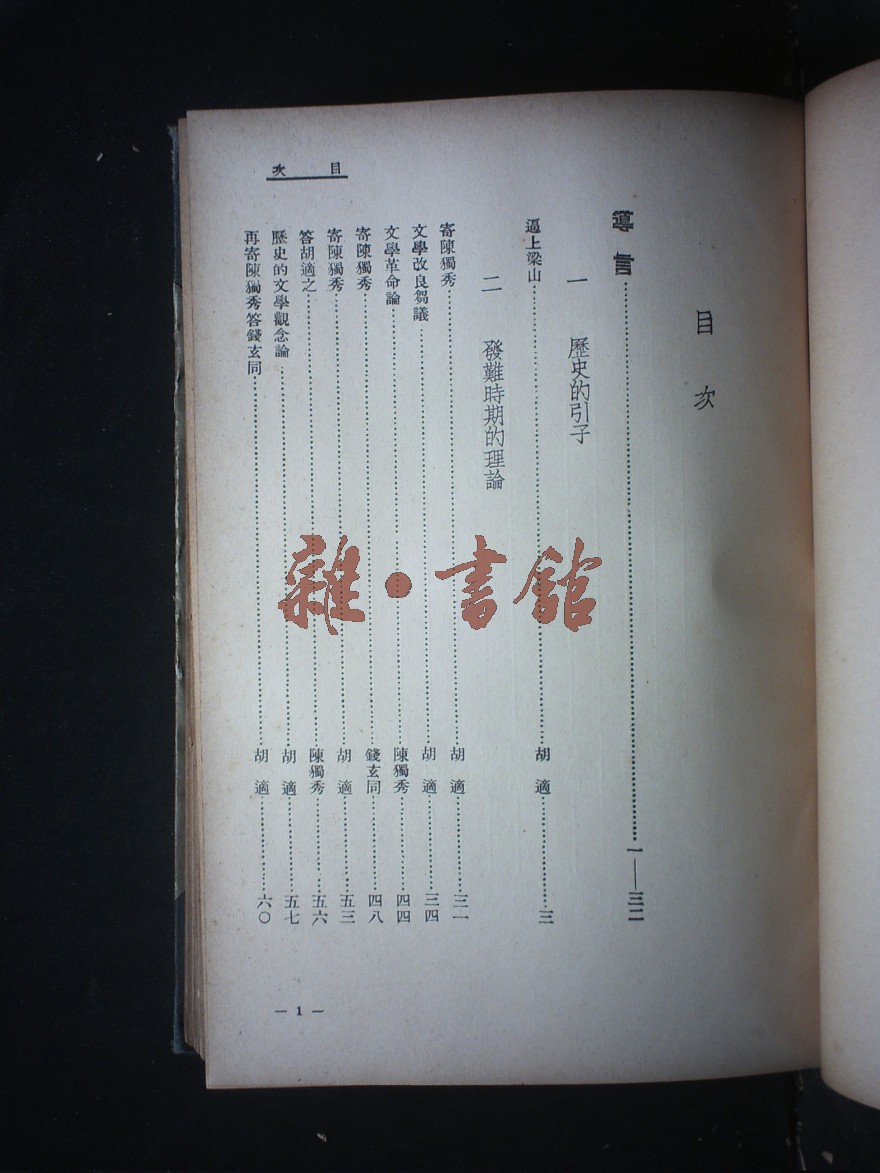 次目
目次
導言……一——三二
一 歷史的引子
逼上梁山……胡適……三
二 發難時期的理論
寄陳獨秀……胡適……三一
文學改良芻議……胡適……三四
文學革命論……陳獨秀……四四
寄陳獨秀……錢玄同……四八
寄陳獨秀……胡適……五三
答胡適之……陳獨秀……五六
歷史的文學觀念論……胡適……五七
再寄陳獨秀答錢玄同……胡適……六〇
— 1 —
雜·書館